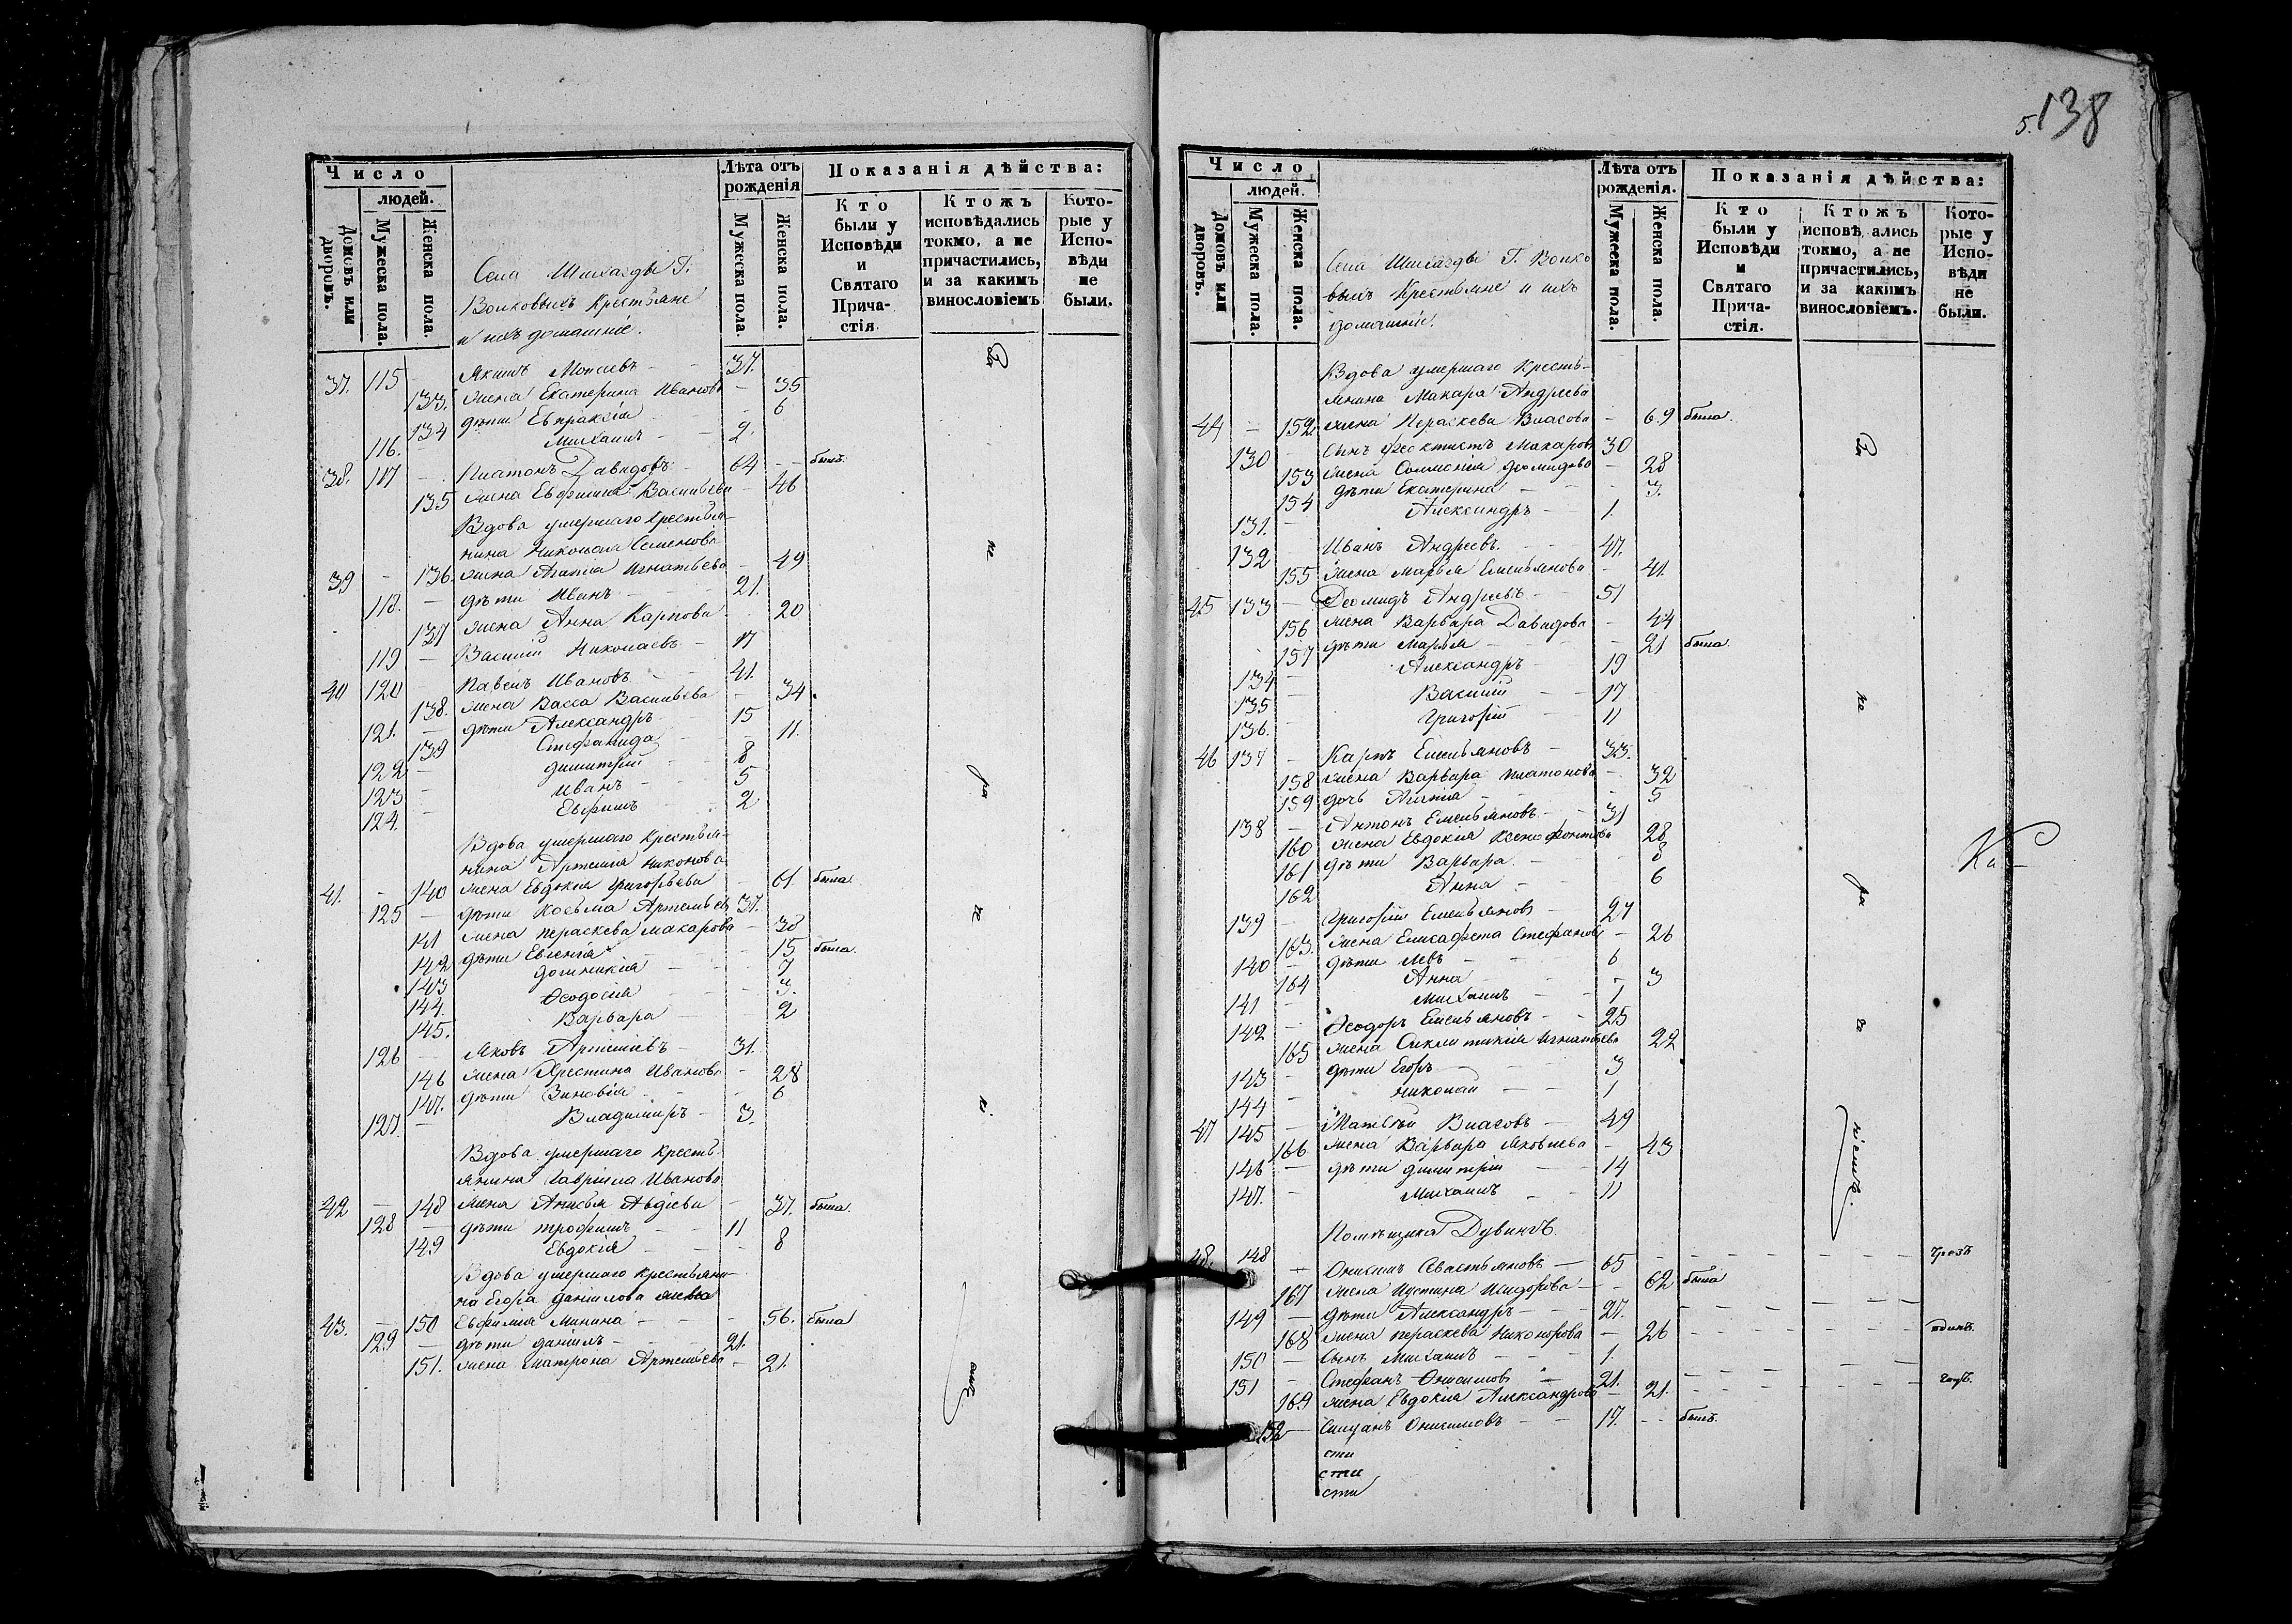 Число
людей.
Домовъ или дворовъ.
Мужеска пола.
Женска пола.
Лѣта отъ рожденія
Мужеска пола.
Женска пола.
Показанія дѣйства:
Кто были у Исповѣди и Святаго Прича-
стія.
Ктожъ исповѣдались токмо, а не причастились, и за какимъ винословіемъ
Кото-
рые у Испо-
вѣди не были.
Села Шигаеды Г.
Волковыхъ Крестьяне
и ихъ домашніе.
37. 115 — Якимъ Моисеевъ — 37.
133. жена Екатерина Иванова — 35
134 дѣти Евпраксія — 6
116. — Михаилъ — 2.
38. 117 — Платонъ Давидовъ — 64 — былъ.
135 жена Евфимія Васильева — 46
Вдова умершаго крестья-
нина Николая Семенова
39 — 136. жена Агапія Игнатьева — 49
118. — дѣти Иванъ — 21.
137 жена Анна Карпова — 20
119 — Василій Николаевъ — 17
40 120 Павелъ Ивановъ — 41.
138. жена Васса Васильева — 34
121. — дѣти Александръ — 15
139 Стефанида — 11.
122 — Димитрій — 8
123 — Иванъ — 5
124. — Евфимъ — 2
Вдова умершаго крестья-
нина Артемія Никонова
41. — 140 жена Евдокія Григорьева — 61. была.
125 — дѣти Косьма Артемьевъ 37.
141 жена Параскева Макарова — 38
142 дѣти Евгенія — 15 была.
143 Домникія — 7
144. Ѳеодосія — 3.
145. Варвара — 2
126 — Яковъ Артемьевъ — 31.
146 жена Христина Иванова — 28
147. дѣти Зиновія — 6
127. — Владиміръ — 3.
Вдова умершаго кресть-
янина Гавріила Иванова
42 — 148 жена Анисья Авдіева — 37. была.
128 — дѣти Трофимъ — 11
149 Евдокія — 8
Вдова умершаго крестьяни-
на Егора Данилова жена
43. — 150 Евфимія Минина — 56. была
129 — дѣти Даніилъ — 21.
151. жена Матрона Артемьева — 21.
За
не
ра
че
ні
емъ
5. 138
Число
людей.
Домовъ или дворовъ.
Мужеска пола.
Женска пола.
Лѣта отъ рожденія.
Мужеска пола.
Женска пола.
Показанія дѣйства:
Кто были у Исповѣди и Святаго Прича-
стія.
Ктожъ исповѣ ались токмо, а не причастились, и за какимъ винословіемъ.
Кото-
рые у Испо-
вѣди не были.
Села Шигаеды Г. Волко
выхъ Крестьяне и ихъ
домашніе.
Вдова умершаго Кресть-
янина Макара Андреева
44 — 152 жена Параскева Власова — 69 была.
130 — сынъ Ѳеоктистъ Макаровъ 30
153 жена Соломонія Діомидова — 28
154 дѣти Екатерина — 3.
131. — Александръ — 1.
132 Иванъ Андреевъ. — 47.
155 жена Марья Емельянова — 41.
45 133 — Деомидъ Андреевъ — 51
156 жена Варвара Давидова — 44
157 дѣти Марья — 21 была.
134 — Александръ — 19
135 Василій — 17
136. — Григорій — 11
46 137 — Карпъ Емельяновъ — 33.
158 жена Варвара Платонова — 32
159 дочь Агапія — 5
138 — Антонъ Емельяновъ — 31
160 жена Евдокія Ксенофонтова 28
161 дѣти Варвара — 8
162 Анна — 6
139 — Григорій Емельяновъ — 27
163. жена Елисавета Стефанова — 26
140 — дѣти Левъ — 6
164 Анна — 3
141 — Михаилъ — 1
142 — Ѳеодоръ Емельяновъ — 25
165 жена Сиклитикія Игнатьева 22
143 — дѣти Егоръ — 3
144 — Николай — 1
47 145 — Матвѣй Власовъ — 49
166 жена Варвара Яковлева — 43
146 — дѣти Димитрій — 14
147. — Михаилъ — 11
Помѣщика Дувингъ.
48. 148 — Онисимъ Севастьяновъ — 65
167 жена Иустина Исидорова — 62 была
149 — дѣти Александръ — 27.
168 жена Параскева Никонорова — 26
150 — сынъ Михаилъ — 1.
151 — Стефанъ Онисимовъ — 21.
169 жена Евдокія Александрова — 21.
152 — Силуанъ Онисимовъ — 17. — былъ.
сти
сти
сти
За
не
ра
че
ніемъ.
чрезъ
одинъ.
годъ.
Ка-